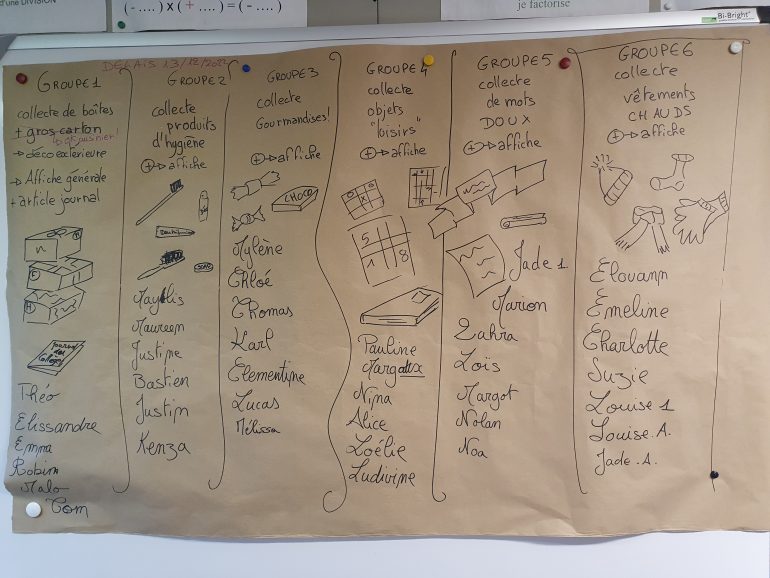 d'une DIVISION
(- ....) x (+ ....) = (- ....)
je factorise
Bi-Bright
DELAIS 13/12/2022
GROUPE 1
collecte de boîtes
+ gros carton
→ déco extérieure
→ Affiche générale
+ article journal
Théo
Elissandre
Emma
Robin
Malo
Tom
GROUPE 2
collecte
produits
d'hygiène
+ → affiche
Maylis
Maureen
Justine
Bastien
Justin
Kenza
GROUPE 3
collecte
Gourmandises!
+ → affiche
CHOCO
Mylène
Chloé
Thomas
Karl
Clémentine
Lucas
Mélissa
GROUPE 4
collecte
objets
"loisirs"
+ → affiche
5
1 8
Pauline
Margaux
Nina
Alice
Zoélie
Ludivine
GROUPE 5
collecte
de mots
DOUX
+ → affiche
Jade 1
Marion
Zahra
Loïs
Margot
Nolan
Noa
GROUPE 6
collecte
vêtements
CHAUDS
+ → affiche
Elouann
Emeline
Charlotte
Suzie
Louise 1
Louise.A.
Jade.A.